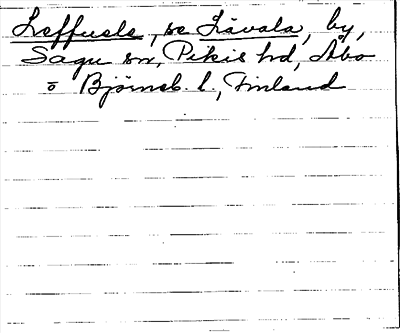 Leffuela, se Lävala, by,
Sagu sn, Pikis hd, Åbo
o Björneb. l., Finland